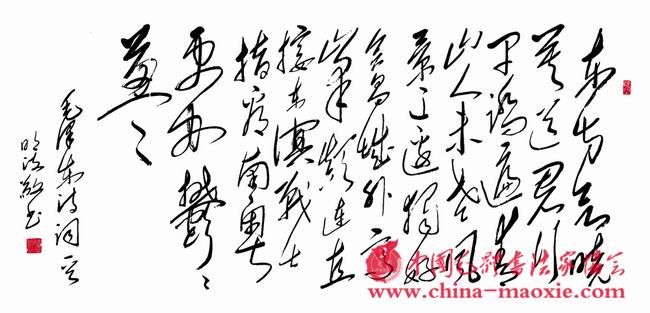 东方欲晓
莫道君行
早踏遍青
山人未老风
景这边独好
会昌城外高
峰颠连直
接东溟战士
指看南粤
更加鬱々
葱々
毛泽东诗词
敬书
中國毛體書法家協會
www.china-maoxie.com